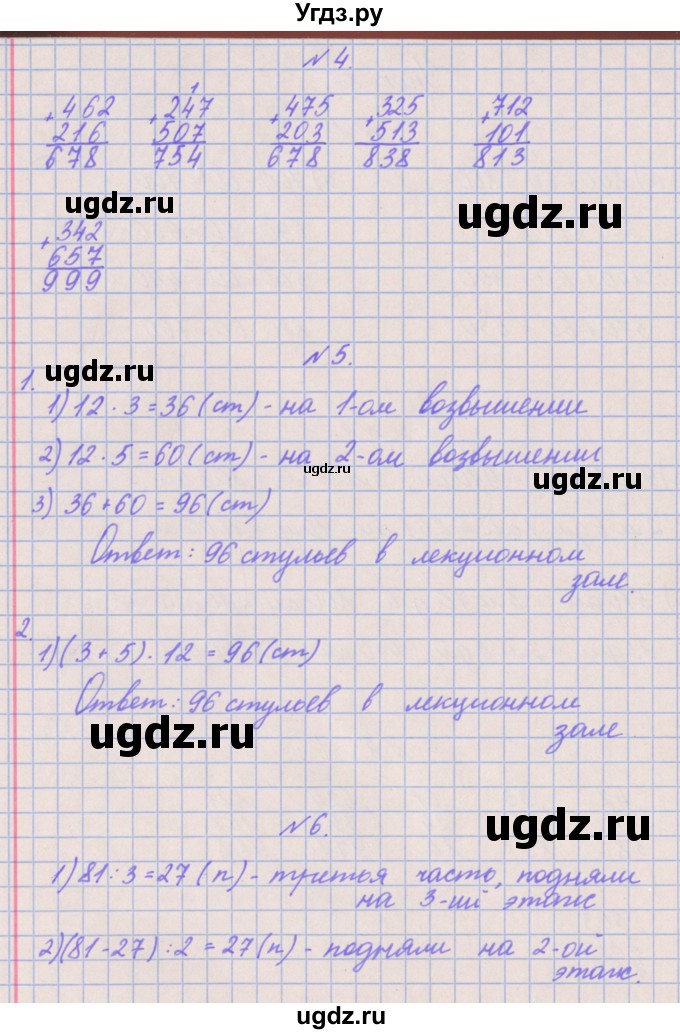 Угдз.ру
№ 4.
1
+462 +247 +475 +325 +712
216 507 203 513 101
678 754 678 838 813
ugdz.ru ugdz.ru
+342
657
999
№ 5.
ugdz.ru
1.
1) 12 · 3 = 36 (ст) - на 1-ом возвышении
2) 12 · 5 = 60 (ст) - на 2-ом возвышении
ugdz.ru
ugdz.ru
3) 36 + 60 = 96 (ст)
Ответ: 96 стульев в лекционном
зале.
2.
1) (3 + 5) · 12 = 96 (ст)
Ответ: 96 стульев в лекционном
зале
ugdz.ru
№ 6.
ugdz.ru
1) 81 : 3 = 27 (п) - третья часть, подняли
на 3-ий этаж
2) (81 - 27) : 2 = 27 (п) - подняли на 2-ой
этаж.
ugdz.ru